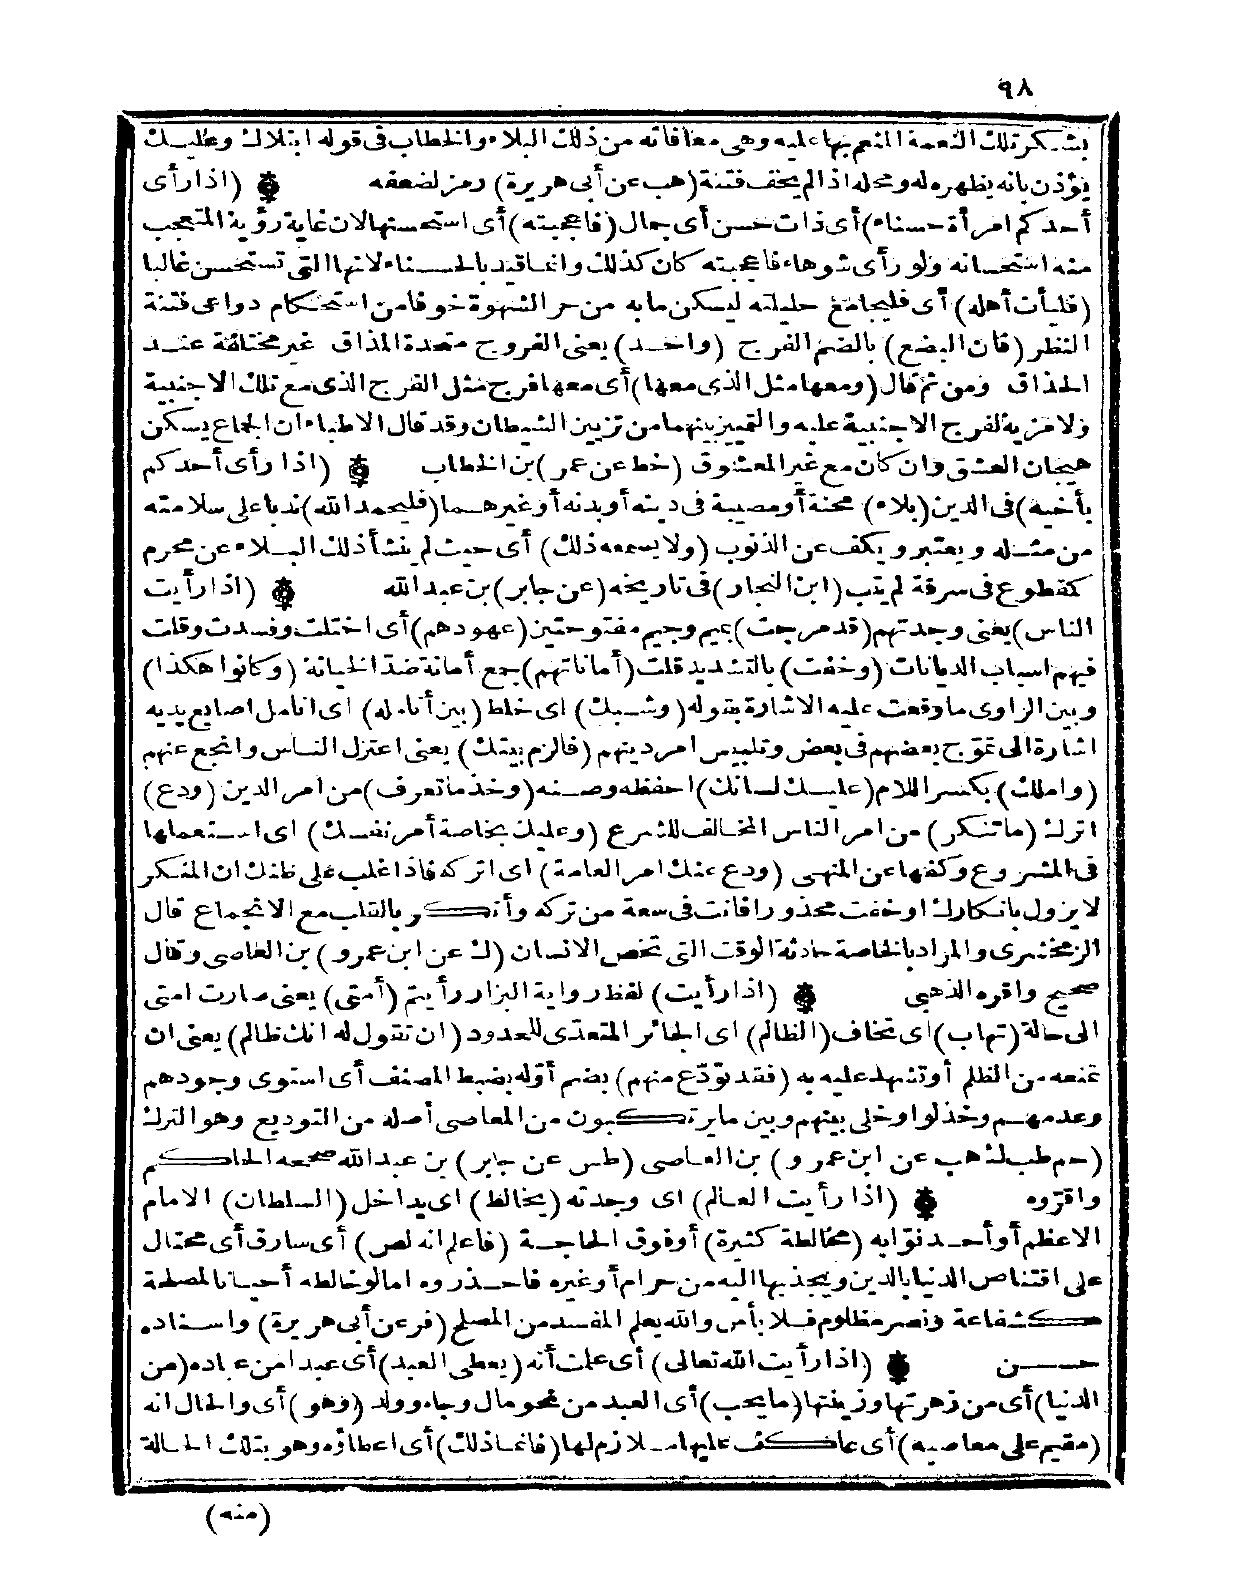 ٩٨
بشكر تلك النعمة المنعم بها عليه وهى معافاته من ذلك البلاء والخطاب فى قوله ابتلاك وعليك
يؤذن بانه يظهره له ومحله اذا لم يخف فتنة (هب عن أبى هريرة) رمز لضعفه ۞ (اذا رأى
أحدكم امرأة حسناء) أى ذات حسن أى جمال (فاعجبته) أى استحسنها لان غاية رؤية المتعجب
منه استحسانه ولو رأى شوهاء فاعجبته كان كذلك وانما قيد بالحسناء لانها التى تستحسن غالبا
(فليأت أهله) أى فليجامع حليلته ليسكن ما به من حر الشهوة خوفا من استحكام دواعى فتنة
النظر (فان البضع) بالضم الفرج (واحد) يعنى الفروج متحدة المذاق غير مختلفة عند
الحذاق ومن ثم قال (ومعها مثل الذى معها) أى معها فرج مثل الفرج الذى مع تلك الاجنبية
ولا مزية لفرج الاجنبية عليه والتمييز بينهما من تزيين الشيطان وقد قال الاطباء ان الجماع يسكن
هيجان العشق وان كان مع غير المعشوق (خط عن عمر) بن الخطاب ۞ (اذا رأى أحدكم
بأخيه) فى الدين (بلاء) محنة أو مصيبة فى دينه أو بدنه أو غيرهما (فليحمد الله) ندبا على سلامته
من مثله ويعتبر ويكف عن الذنوب (ولا يسمعه ذلك) أى حيث لم ينشأ ذلك البلاء عن محرم
كمقطوع فى سرقة لم يتب (ابن النجار) فى تاريخه (عن جابر) بن عبد الله ۞ (اذا رأيت
الناس) يعنى وجدتهم (قد مرجت) بميم وجيم مفتوحتين (عهودهم) أى اختلت وفسدت وقلت
فيهم اسباب الديانات (وخفت) بالتشديد قلت (أماناتهم) جمع أمانة ضد الخيانة (وكانوا هكذا)
وبين الراوى ما وقعت عليه الاشارة بقوله (وشبك) اى خلط (بين أنامله) اى انامل اصابع يديه
اشارة الى تموج بعضهم فى بعض وتلبيس امر دينهم (فالزم بيتك) يعنى اعتزل الناس وانجمع عنهم
(واملك) بكسر اللام (عليك لسانك) احفظه وصنه (وخذ ما تعرف) من امر الدين (ودع)
اترك (ما تنكر) من امر الناس المخالف للشرع (وعليك بخاصة أمر نفسك) اى استعملها
فى المشروع وكفها عن المنهى (ودع عنك امر العامة) اى اتركه فاذا غلب على ظنك ان المنكر
لا يزول بانكارك او خفت محذورا فانت فى سعة من تركه وأنكر بالقلب مع الانجماع قال
الزمخشرى والمراد بالخاصة حادثة الوقت التى تخص الانسان (ك عن ابن عمرو) بن العاصى وقال
صحيح واقره الذهبى ۞ (اذا رأيت) لفظ رواية البزار رأيتم (أمتى) يعنى صارت امتى
الى حالة (تهاب) اى تخاف (الظالم) اى الجائر المتعدّى للحدود (ان تقول له انك ظالم) يعنى ان
تمنعه من الظلم أو تشهد عليه به (فقد تودّع منهم) بضم أوّله بضبط المصنف أى استوى وجودهم
وعدمهم وخذلوا وخلى بينهم وبين ما يرتكبون من المعاصى أصله من التوديع وهو الترك
(حم طب ك هب عن ابن عمرو) بن العاصى (طس عن جابر) بن عبد الله صححه الحاكم
واقرّوه ۞ (اذا رأيت العالم) اى وجدته (يخالط) اى يداخل (السلطان) الامام
الاعظم أو أحد نوّابه (مخالطة كثيرة) أو فوق الحاجة (فاعلم انه لص) أى سارق أى محتال
على اقتناص الدنيا بالدين ويجذبها اليه من حرام أو غيره فاحذروه اما لو خالطه أحيانا لمصلحة
كشفاعة ونصر مظلوم فلا بأس والله يعلم المفسد من المصلح (فر عن أبى هريرة) واسناده
حسن ۞ (اذا رأيت الله تعالى) أى علمت أنه (يعطى العبد) أى عبدا من عباده (من
الدنيا) أى من زهرتها وزينتها (ما يحب) أى العبد من نحو مال وجاه وولد (وهو) أى والحال انه
(مقيم على معاصيه) أى عاكف عليها ملازم لها (فانما ذلك) أى اعطاؤه وهو بتلك الحالة
(منه)